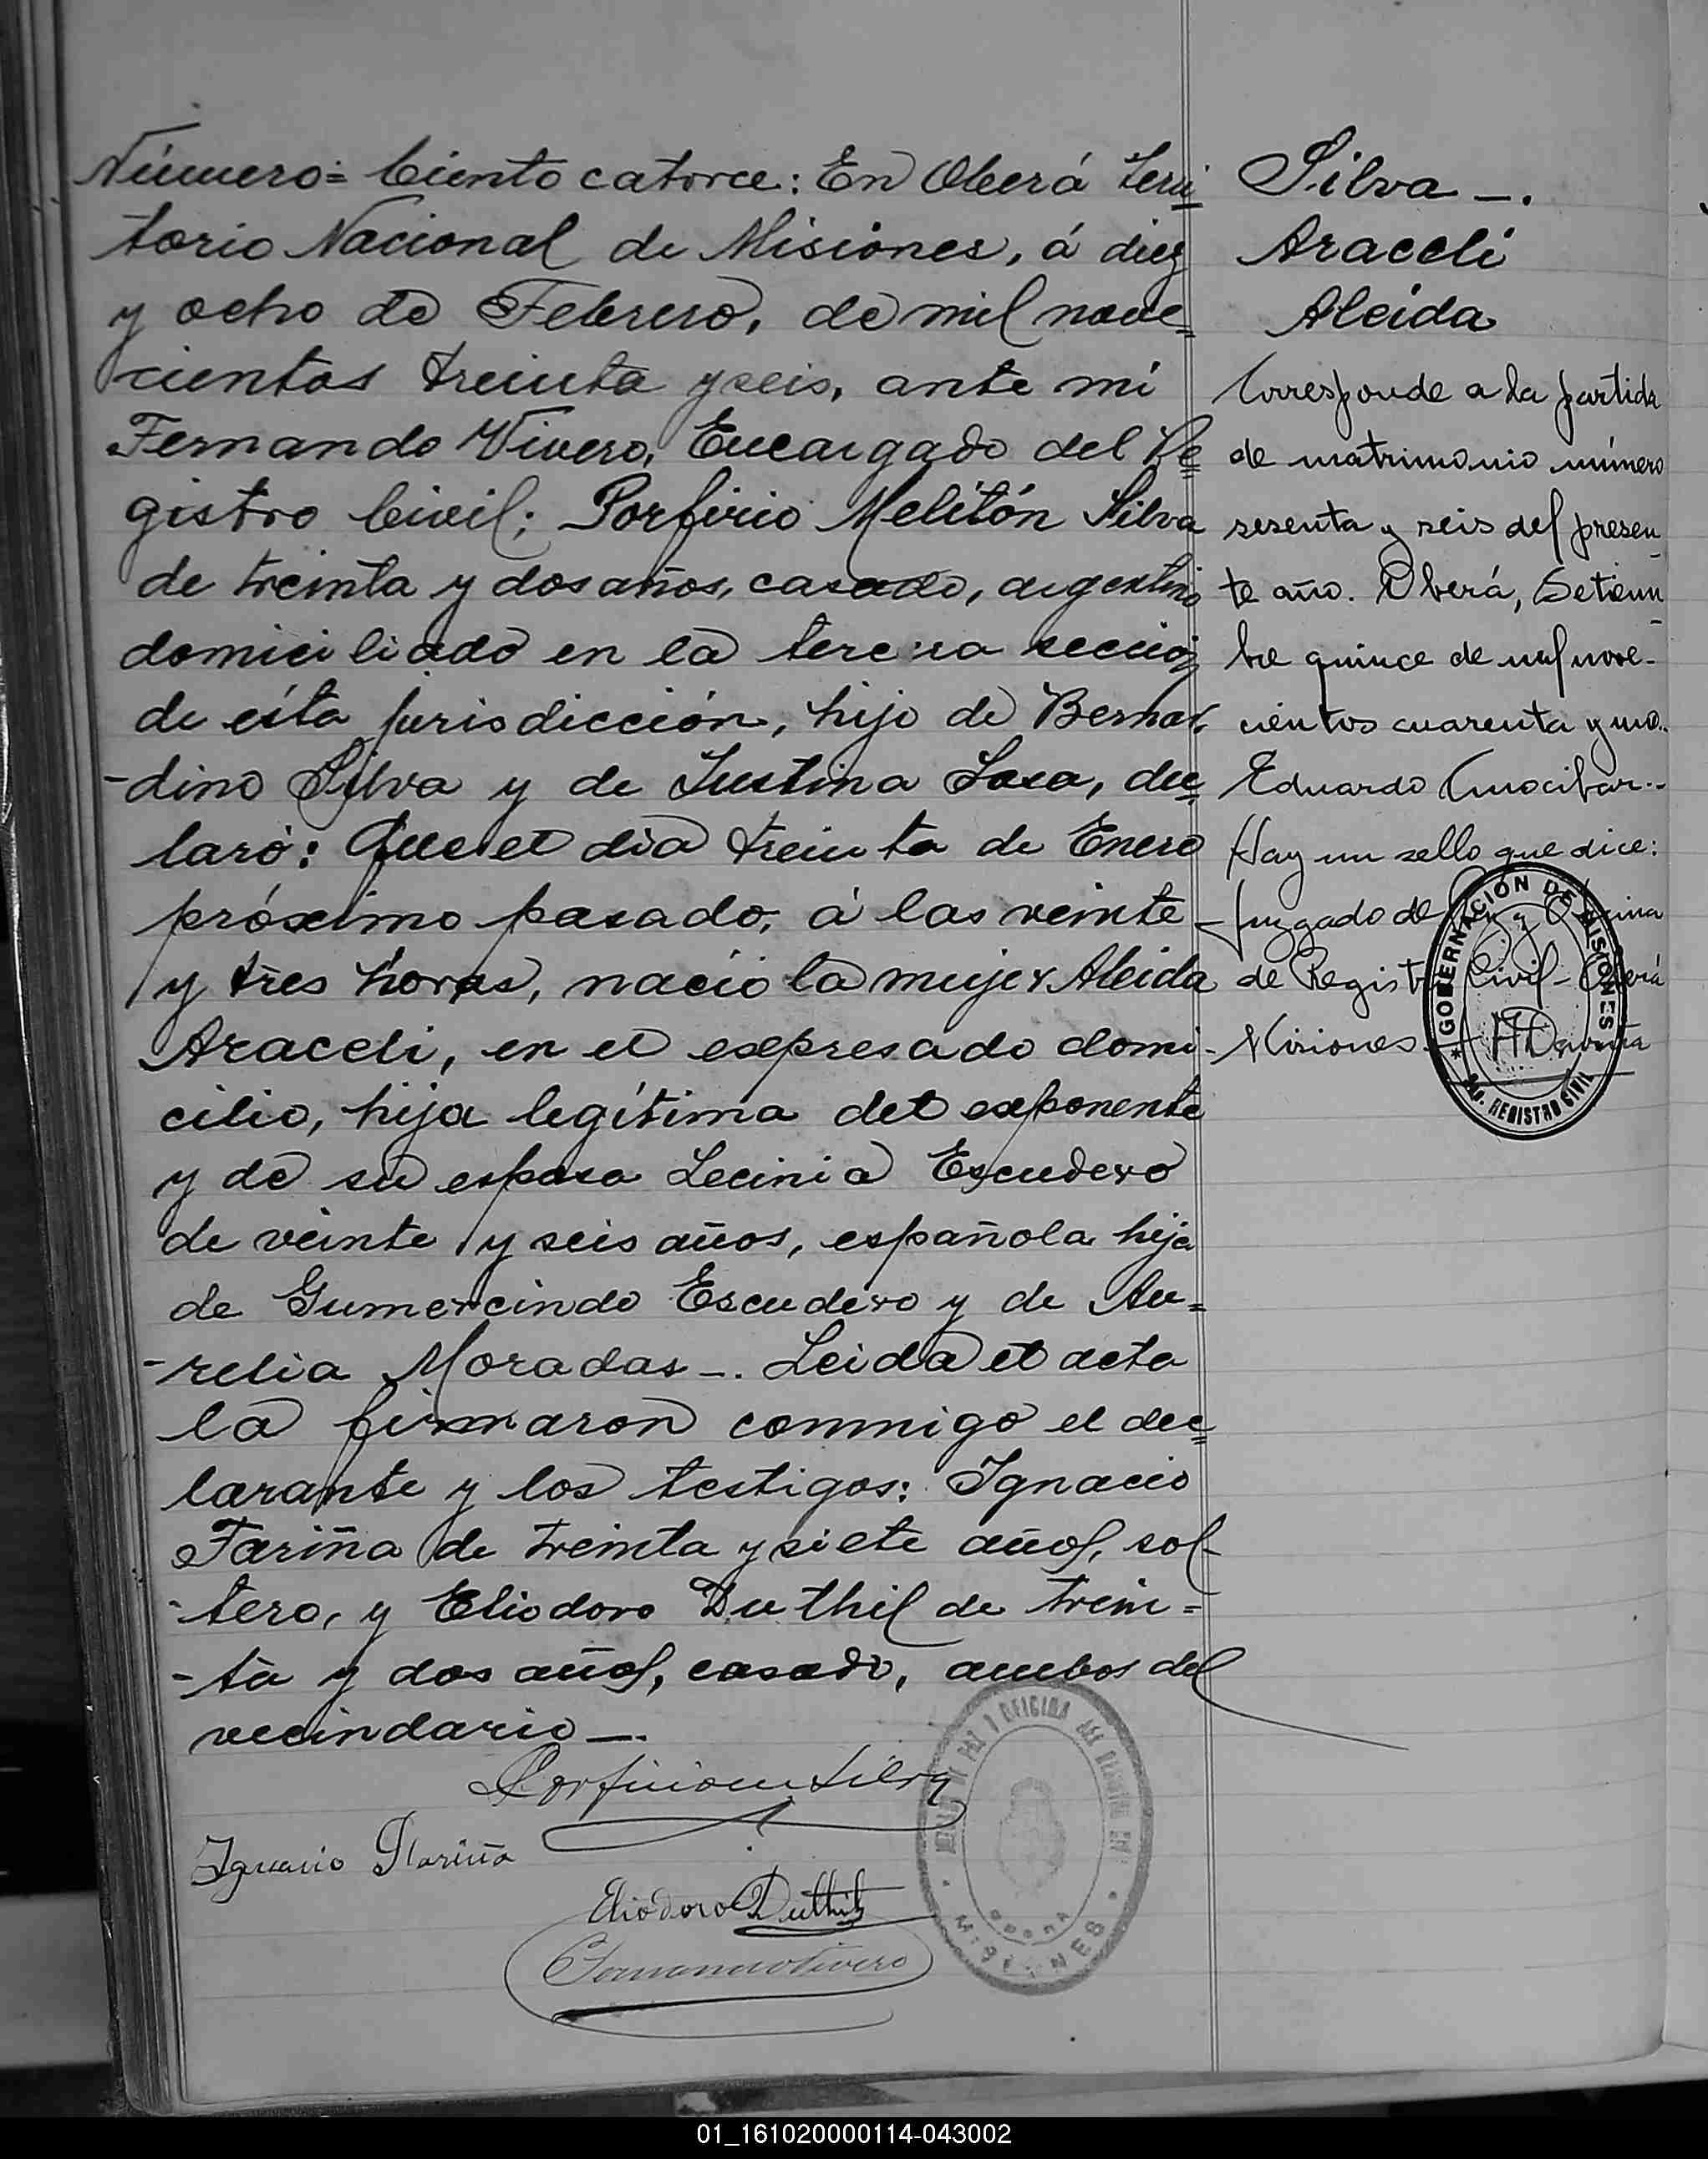 Número= Ciento catorce: En Oberá Terri
torio Nacional de Misiones, á diez
y ocho de Febrero, de mil nove=
cientos treinta y seis, ante mi
Fernando Vivero, Encargado del Re=
gistro Civil; Porfirio Melitón Silva
de treinta y dos años, casado, argentino
domiciliado en la tercera sección
de ésta jurisdicción, hijo de Bernar
-dino Silva y de Justina Sosa, dec=
laró: Que el dia treinta de Enero
próximo pasado, á las veinte
y tres horas, nació la mujer Aleida
Araceli, en el expresado domi-
cilio, hija legítima del exponente
y de su esposa Lecinia Escudero
de veinte y seis años, española hija
de Gumercindo Escudero y de Au=
-relia Moradas -. Leida el acta
la firmaron conmigo el dec=
larante y los testigos: Ignacio
Fariña de treinta y siete años, sol
-tero, y Eliodoro Duthil de trein=
-ta y dos años, casado, ambos del
vecindario -.
Porfirio M Silva
Ignacio Fariña
Eliodoro Duthil
Fernando Vivero
MISIONES
Silva -.
Araceli
Aleida
Corresponde a la partida
de matrimonio número
sesenta y seis del presen
te año. Oberá, Setiem
bre quince de mil nove-
cientos cuarenta y uno.
Eduardo
Hay un sello que dice:
Juzgado de Paz y Oficina
de Registro Civil - Oberá
Misiones.
GOBERNACIÓN DE MISIONES
REGISTRO CIVIL
01_161020000114-043002